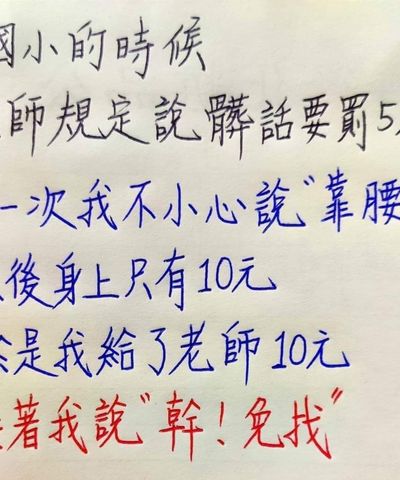 國小的時候
師規定說髒話要罰5
一次我不小心說“靠腰
後身上只有10元
是我給了老師10元
著我說“幹！免找”